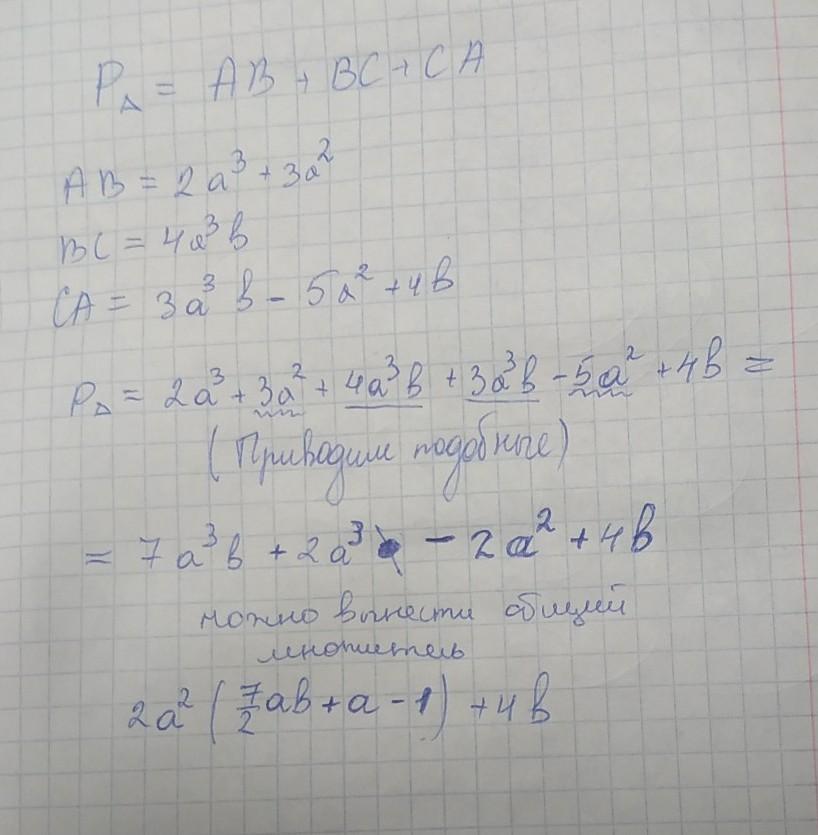 P△ = AB + BC + CA
AB = 2a³ + 3a²
BC = 4a³b
CA = 3a³b - 5a² + 4b
P△ = 2a³ + 3a² + 4a³b + 3a³b - 5a² + 4b =
(Приводим подобные)
= 7a³b + 2a³ - 2a² + 4b
можно вынести общий
множитель
2a² (7/2 ab + a - 1) + 4b